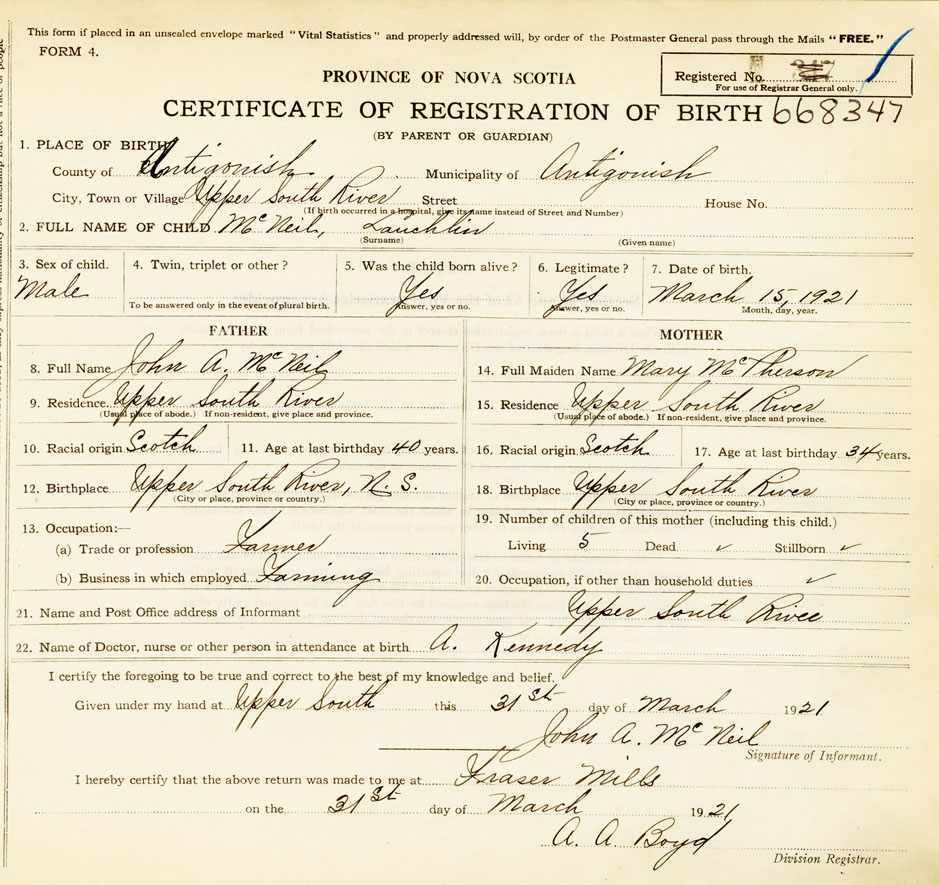 This form if placed in an unsealed envelope marked "Vital Statistics" and properly addressed will, by order of the Postmaster General pass through the Mails "FREE."
FORM 4.
Registered No.
For use of Registrar General only.
PROVINCE OF NOVA SCOTIA
CERTIFICATE OF REGISTRATION OF BIRTH 668347
(BY PARENT OR GUARDIAN)
1. PLACE OF BIRTH
County of Antigonish Municipality of Antigonish
City, Town or Village Upper South River Street House No.
(If birth occurred in a hospital, give its name instead of Street and Number)
2. FULL NAME OF CHILD McNeil, Lauchlin
(Surname) (Given name)
3. Sex of child. 4. Twin, triplet or other? 5. Was the child born alive? 6. Legitimate? 7. Date of birth.
Male Yes Yes March 15, 1921
To be answered only in the event of plural birth. Answer, yes or no. Answer, yes or no. Month, day, year.
FATHER MOTHER
8. Full Name John A. McNeil 14. Full Maiden Name Mary McPherson
9. Residence. Upper South River 15. Residence Upper South River
(Usual place of abode.) If non-resident, give place and province. (Usual place of abode.) If non-resident, give place and province.
10. Racial origin Scotch 11. Age at last birthday 40 years. 16. Racial origin Scotch 17. Age at last birthday 34 years.
12. Birthplace Upper South River, N. S. 18. Birthplace Upper South River
(City or place, province or country.) (City or place, province or country.)
13. Occupation:— 19. Number of children of this mother (including this child.)
(a) Trade or profession Farmer Living 5 Dead ✓ Stillborn ✓
(b) Business in which employed Farming 20. Occupation, if other than household duties ✓
21. Name and Post Office address of Informant Upper South River
22. Name of Doctor, nurse or other person in attendance at birth A. Kennedy
I certify the foregoing to be true and correct to the best of my knowledge and belief.
Given under my hand at Upper South this 31st day of March 1921
John A. McNeil
Signature of Informant.
I hereby certify that the above return was made to me at Fraser Mills
on the 31st day of March 1921
A. A. Boyd
Division Registrar.